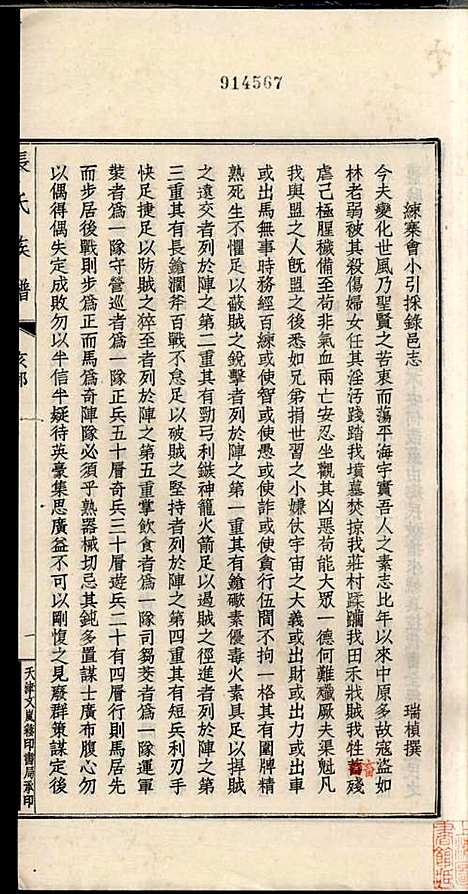 914567
練寨會小引採錄邑志
瑞楨撰
今夫變化世風乃聖賢之苦衷而蕩平海宇實吾人之素志比年以來中原多故寇盜如
林老弱被其殺傷婦女任其淫汚踐踏我墳墓焚掠我莊村蹂躪我田禾戕賊我牲畜殘
虐已極腥穢備至苟非氣血兩亡安忍坐觀其凶惡苟能大眾一德何難殲厥夫渠魁凡
我與盟之人旣盟之後如兄弟捐世習之小嫌仗宇宙之大義或出財或出力或出車
或出馬無事時務經百練或使智或使愚或使詐或使貪行伍間不拘一格其有團牌精
熟死生不懼足以蔽賊之銳擊者列於陣之第一重其有鎗礮素優毒火素具足以捍賊
之遠交者列於陣之第二重其有勁弓利鏃神龍火箭足以遏賊之徑進者列於陣之第
三重其有長鎗濶斧百戰不怠足以破賊之堅持者列於陣之第四重其有短兵利刃手
快足捷足以防賊之猝至者列於陣之第五重掌飲食者爲一隊司芻茭者爲一隊運軍
裝者爲一隊守營巡者爲一隊正兵五十層奇兵三十層遊兵二十有四層行則馬居先
而步居後戰則步爲正而馬爲奇陣隊必須乎熟器械切忌其鈍多置謀士廣布腹心勿
以偶得偶失定成敗勿以半信半疑待英豪集思廣益不可以剛愎之見廢羣策謀定後
張氏族譜
亥部
一
天津文嵐簃印書局承印
畜